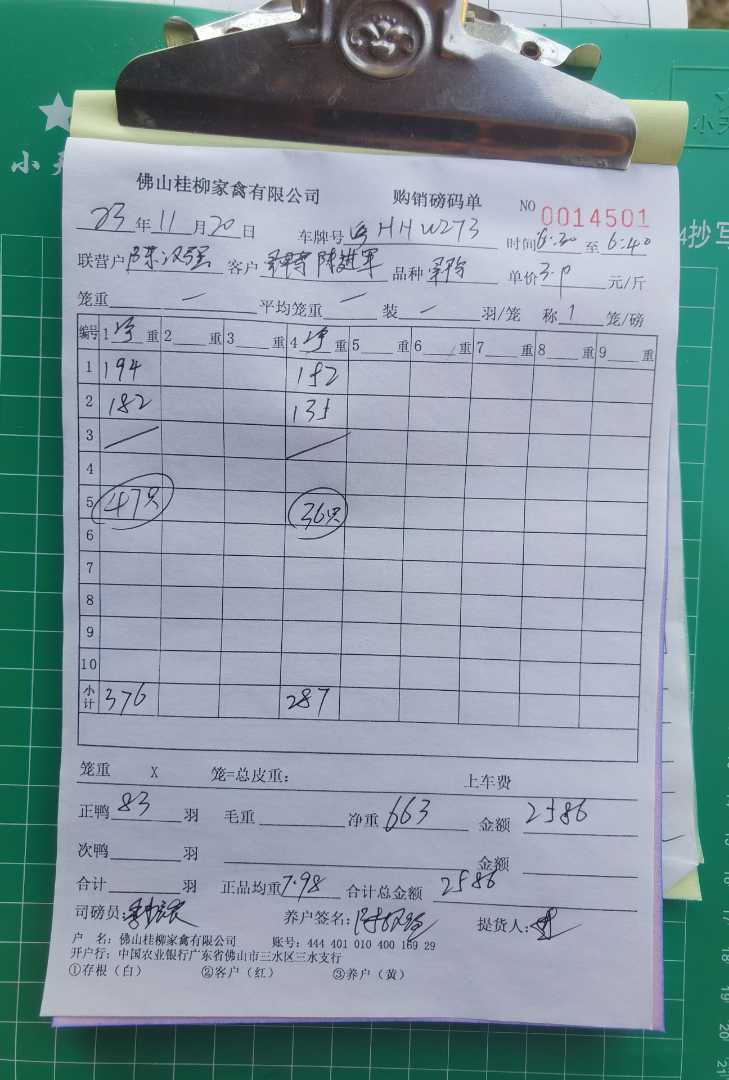 小天
佛山桂柳家禽有限公司 购销磅码单 NO 0014501
23 年 11 月 20 日 车牌号 HHW273 时间 6:30 至 6:40
联营户 陈汉强 客户 陈进军 品种 单价 3.9 元/斤
笼重 — 平均笼重 — 装 — 羽/笼 称 1 笼/磅
编号 1 净 重 2 重 3 重 4 净 重 5 重 6 重 7 重 8 重 9 重
1 194 152
2 182 135
3
4
5 47只 36只
6
7
8
9
10
小计 376 287
笼重 X 笼=总皮重: 上车费
正鸭 83 羽 毛重 净重 663 金额 2586
次鸭 羽 金额
合计 羽 正品均重 7.98 合计总金额 2586
司磅员: 养户签名: 提货人:
户 名: 佛山桂柳家禽有限公司 账号: 444 401 010 400 169 29
开户行: 中国农业银行广东省佛山市三水区三水支行
①存根（白） ②客户（红） ③养户（黄）
4抄写
16
17
18
19
20
21